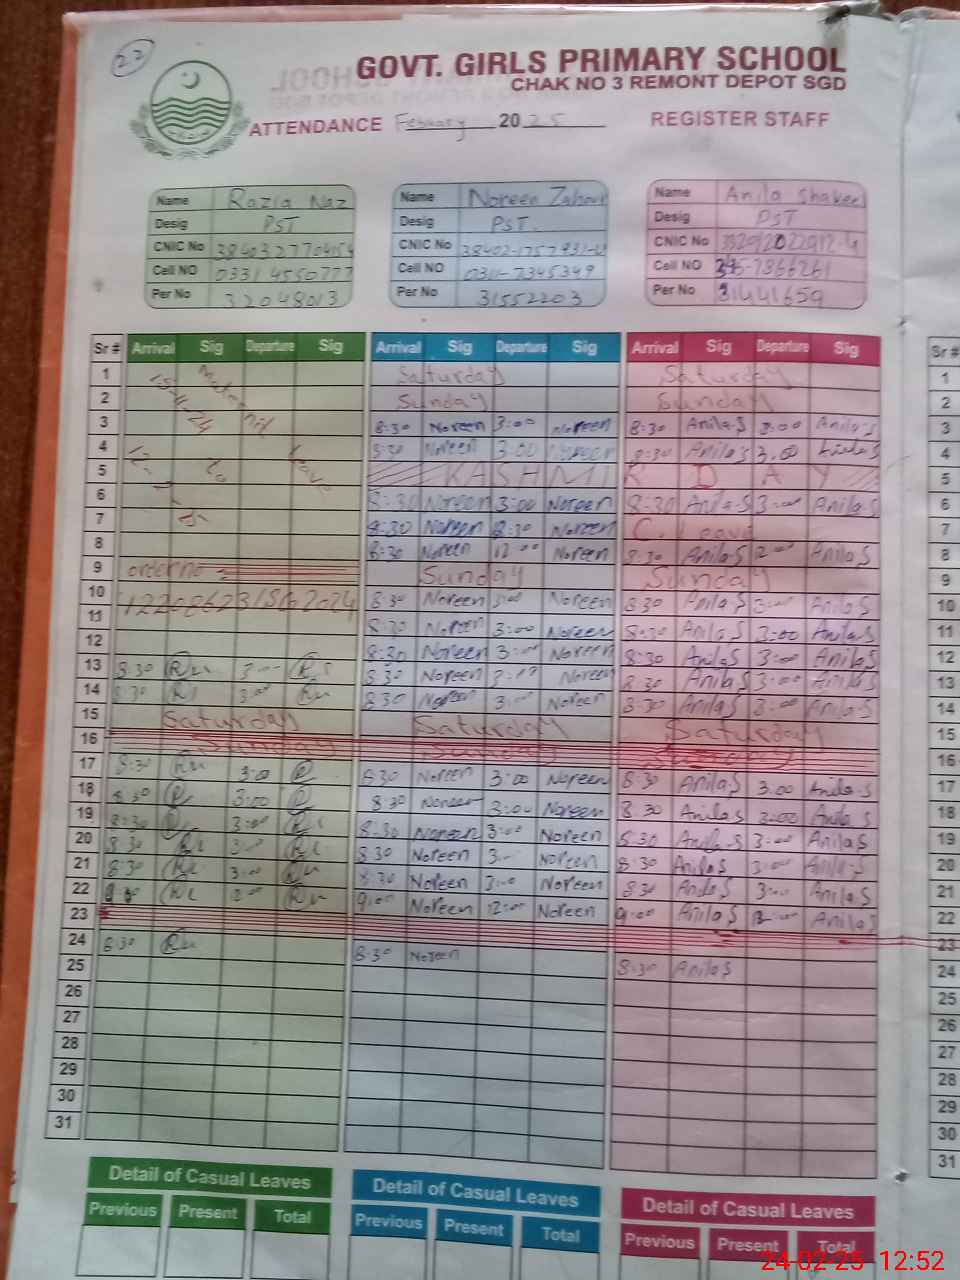 22
GOVT. GIRLS PRIMARY SCHOOL
CHAK NO 3 REMONT DEPOT SGD
ATTENDANCE February 2025 REGISTER STAFF
Name Razia Naz Name Noreen Zahour Name Anila Shakeel
Desig PST Desig PST. Desig PST
CNIC No CNIC No CNIC No
Cell NO 0331 4550777 Cell NO 0311-7345349 Cell NO
Per No 32048013 Per No 31552203 Per No 31441659
Sr # Arrival Sig Departure Sig Arrival Sig Departure Sig Arrival Sig Departure Sig Sr #
1 15-11-24 Maternity Saturday Saturday 1
2 Sunday Sunday 2
3 8:30 Noreen 3:00 Noreen 8:30 Anila S 3:00 Anila S 3
4 to Leave 8:30 Noreen 3:00 Noreen 8:30 Anila S 3.00 Anila S 4
5 KASHMIR DAY 5
6 8:30 Noreen 3:00 Noreen 8:30 Anila S 3:00 Anila S 6
7 8:30 Noreen Noreen C. Leave 7
8 8:30 Noreen 12:00 Noreen 8:30 Anila S 12:00 Anila S 8
9 order no Sunday Sunday 9
10 8:30 Noreen 3:00 Noreen 8:30 Anila S 3:00 Anila S 10
11 8:30 Noreen 3:00 Noreen 8:30 Anila S 3:00 Anila S 11
12 8:30 Noreen 3:00 Noreen 8:30 Anila S 3:00 Anila S 12
13 8:30 3:00 8:30 Noreen 3:00 Noreen 8:30 Anila S 3:00 Anila S 13
14 8:30 3:00 8:30 Noreen 3:00 Noreen 8:30 Anila S 3:00 Anila S 14
15 Saturday Saturday Saturday 15
16 Sunday Sunday Sunday 16
17 8:30 3:00 8:30 Noreen 3:00 Noreen 8:30 Anila S 3.00 Anila S 17
18 8:30 3:00 8:30 Noreen 3:00 Noreen 8.30 Anila S 3:00 Anila S 18
19 8:30 3:00 8:30 Noreen 3:00 Noreen 8:30 Anila S 3:00 Anila S 19
20 8:30 3:00 8:30 Noreen 3:00 Noreen 8:30 Anila S 3:00 Anila S 20
21 8:30 3:00 8:30 Noreen 3:00 Noreen 8:30 Anila S 3:00 Anila S 21
22 9:00 Noreen 12:00 Noreen 9:00 Anila S Anila S 22
23 23
24 8:30 8:30 Noreen 8:30 Anila S 24
25 25
26 26
27 27
28 28
29 29
30 30
31 31
Detail of Casual Leaves Detail of Casual Leaves Detail of Casual Leaves
Previous Present Total Previous Present Total Previous Present Total
24-02-25 12:52